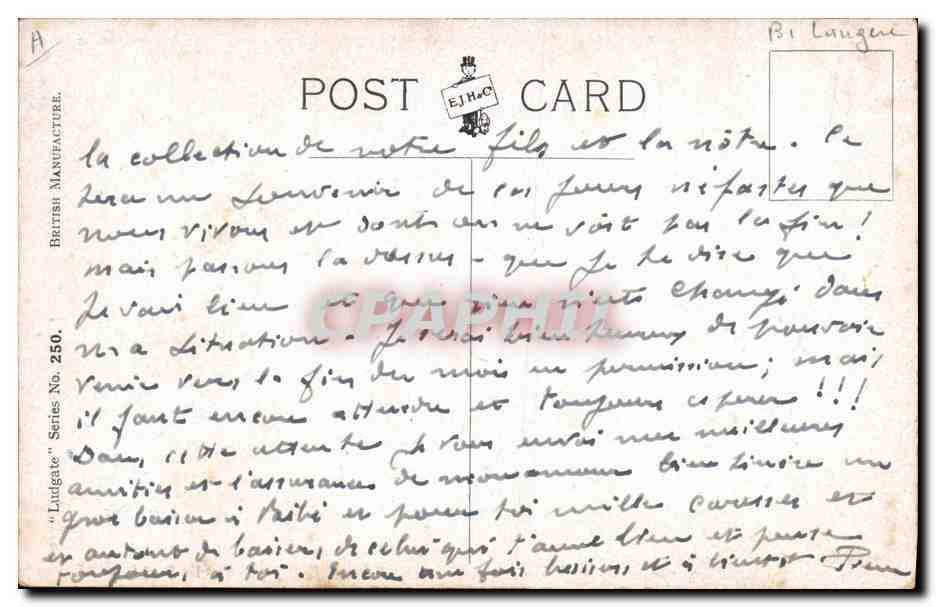 A
Bi
POST CARD
E.J.H & Co
BRITISH MANUFACTURE.
"Ludgate" Series No. 250.
la collection de notre fils et la nôtre. Ce
sera un souvenir de ces jours néfastes que
nous vivons et dont on ne voit pas la fin!
mais passons la dessus - que je te dise que
je vais bien et que rien n'est changé dans
ma situation. Je serai bien heureux de pouvoir
venir vers la fin du mois en permission; mais
il faut encore attendre et toujours espérer!!!
Dans cette attente je vous envoi mes meilleures
amitiés et l'assurance de mon amour bien sincère un
gros baiser à Bébé et pour toi mille caresses et
et autant de baisers, de celui qui t'aime bien et pense
toujours à toi. Encore une fois baisers, et à bientôt Pierre
CPAPHIL